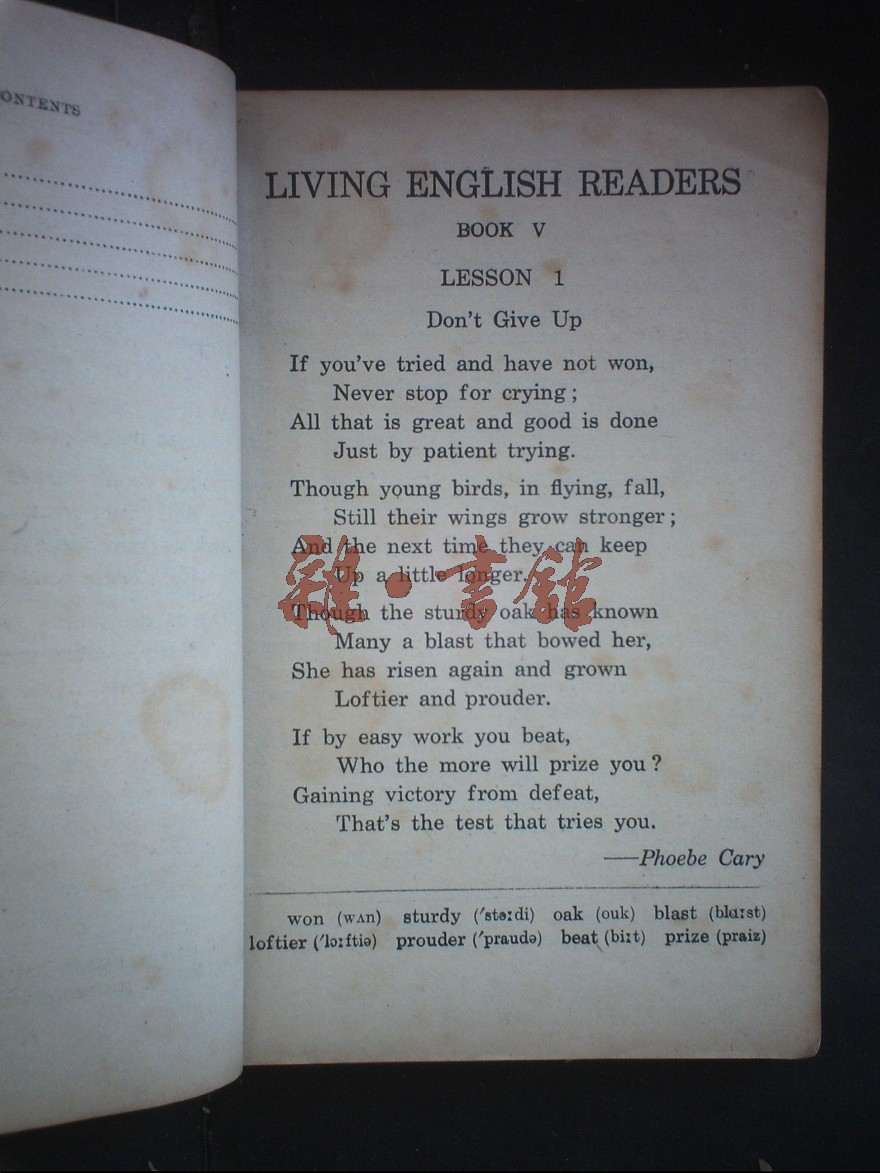 ONTENTS
LIVING ENGLISH READERS
BOOK V
LESSON 1
Don't Give Up
If you've tried and have not won,
Never stop for crying;
All that is great and good is done
Just by patient trying.
Though young birds, in flying, fall,
Still their wings grow stronger;
And the next time they can keep
Up a little longer.
Though the sturdy oak has known
Many a blast that bowed her,
She has risen again and grown
Loftier and prouder.
If by easy work you beat,
Who the more will prize you?
Gaining victory from defeat,
That's the test that tries you.
—Phoebe Cary
won (wʌn) sturdy (ˈstəːdi) oak (ouk) blast (blɑːst)
loftier (ˈlɔːftiə) prouder (ˈpraudə) beat (biːt) prize (praiz)
雜·書館